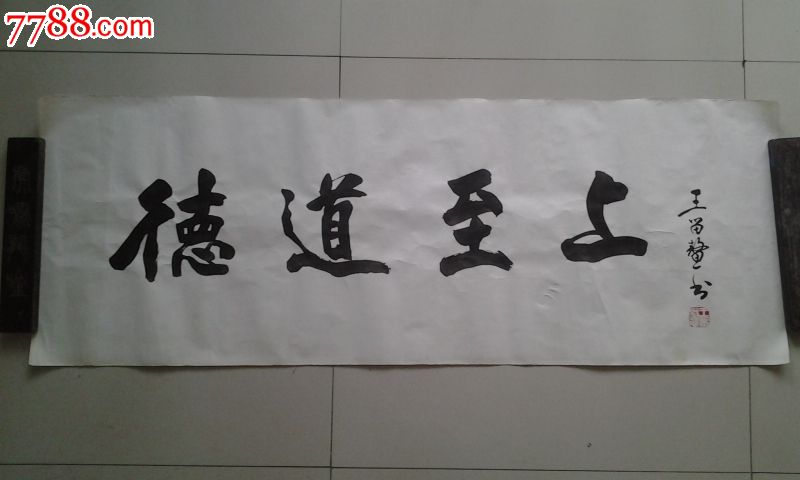 7788.com
德道至上
王留鳌书